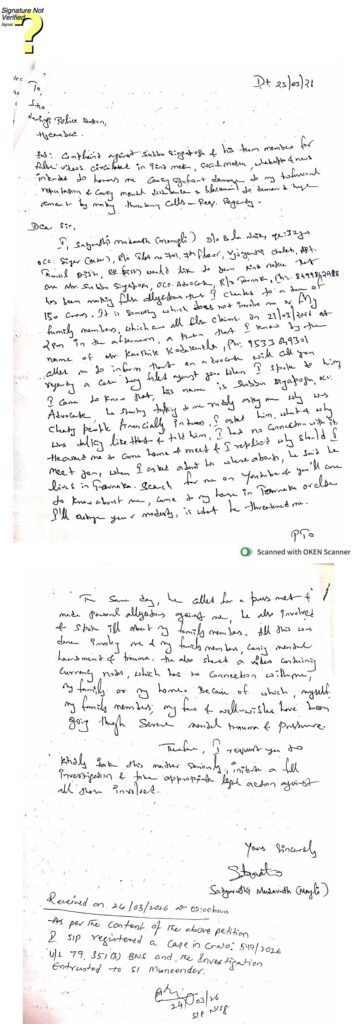 Signature Not
Verified
Signed
?
Dt 23/03/26
To,
S.H.o
Police Station,
Hyderabad.
Sub: Complaint against Subbu Singapogu & his team members for
false videos circulated in Print media, social media, whatsapp & news
intended to harass me causing significant damage to my professional
reputation & causing mental disturbance & blackmail to demand huge
amount by making threatening calls – Reg.
Dear Sir,
I, Satyavathi (Mangli) D/o age: 32 yrs
occ: Singer (artist), R/o Flat no 701, 7th floor,
would like to your kind notice that
one Mr. Subbu Singapogu, occ: Advocate, R/o Tarnaka, Ph:
has been making false allegations that I cheated to a sum of
150 crores. It is something which does not involve me or my
family members, which are all false claims. on 21/03/2026 at
2pm in the afternoon, a person that I know by the
name of Mr. Kaushik Ph: 95338 49301
called me to inform that an advocate will call you
regarding a case being filed against you. When I spoke to him
I came to know that, his name is Subbu Singapogu, occ:
Advocate, he started talking to me rudely asking me why was
cheating people financially I asked him, what & why
was talking like that & told him, I had no connection with it.
threatened me to come home & meet & I replied why should I
meet you, when I asked about his where abouts, he said he
lives in Tarnaka. Search for me on Youtube & you'll come
to know about me, come to my home in Tarnaka or else
I'll outrage your modesty, is what he threatened me.
PTO
Scanned with OKEN Scanner
The same day, he called for a press meet &
made personal allegations against me, he also involved
& spoke ill about my family members. All this was
done involving me & my family members, causing mental
harassment & trauma. He also shared a video containing
currency notes, which has no connection with me,
my family or my home. Because of which, myself,
my family members, my fans & well-wishers have been
going through severe mental trauma & pressure.
Therefore, I request you to
kindly take this matter seriously, initiate a full
investigation & take appropriate legal action against
all those involved.
Yours Sincerely
Satyavathi (Mangli)
Received on 24/03/2026 at 00:00 hours
As per the content of the above petition
I SIP registered a case in Cr.No: 549/2026
U/s 79, 351(3) BNS and the investigation
Entrusted to SI Muneender.
24/03/26
SIP